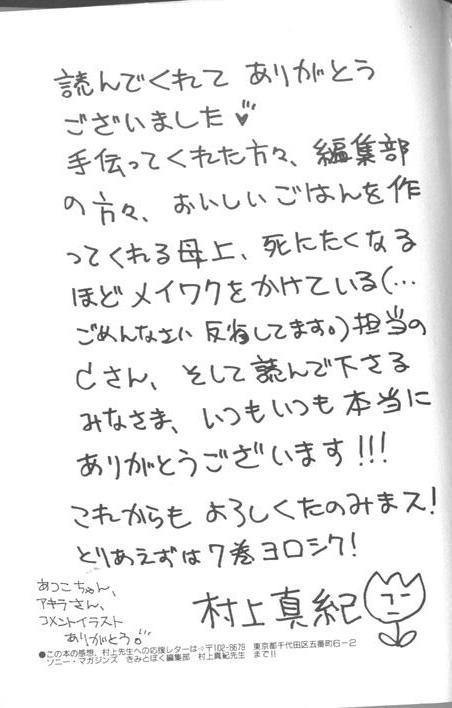 読んでくれて ありがとう
ございました♥
手伝ってくれた方々、編集部
の方々、おいしいごはんを作
ってくれる母上、死にたくなる
ほどメイワクをかけている(…
ごめんなさい 反省してます。)担当の
Cさん、そして読んで下さる
みなさま、いつもいつも本当に
ありがとうございます!!!
これからも よろしくたのみまス!
とりあえずは7巻ヨロシク!
村上真紀
あつこちゃん、
アキラさん、
コメントイラスト
ありがとう!!
●この本の感想、村上先生への応援レターは⇨〒102-8679 東京都千代田区五番町6-2
ソニー・マガジンズ きみとぼく編集部 村上真紀先生 まで!!